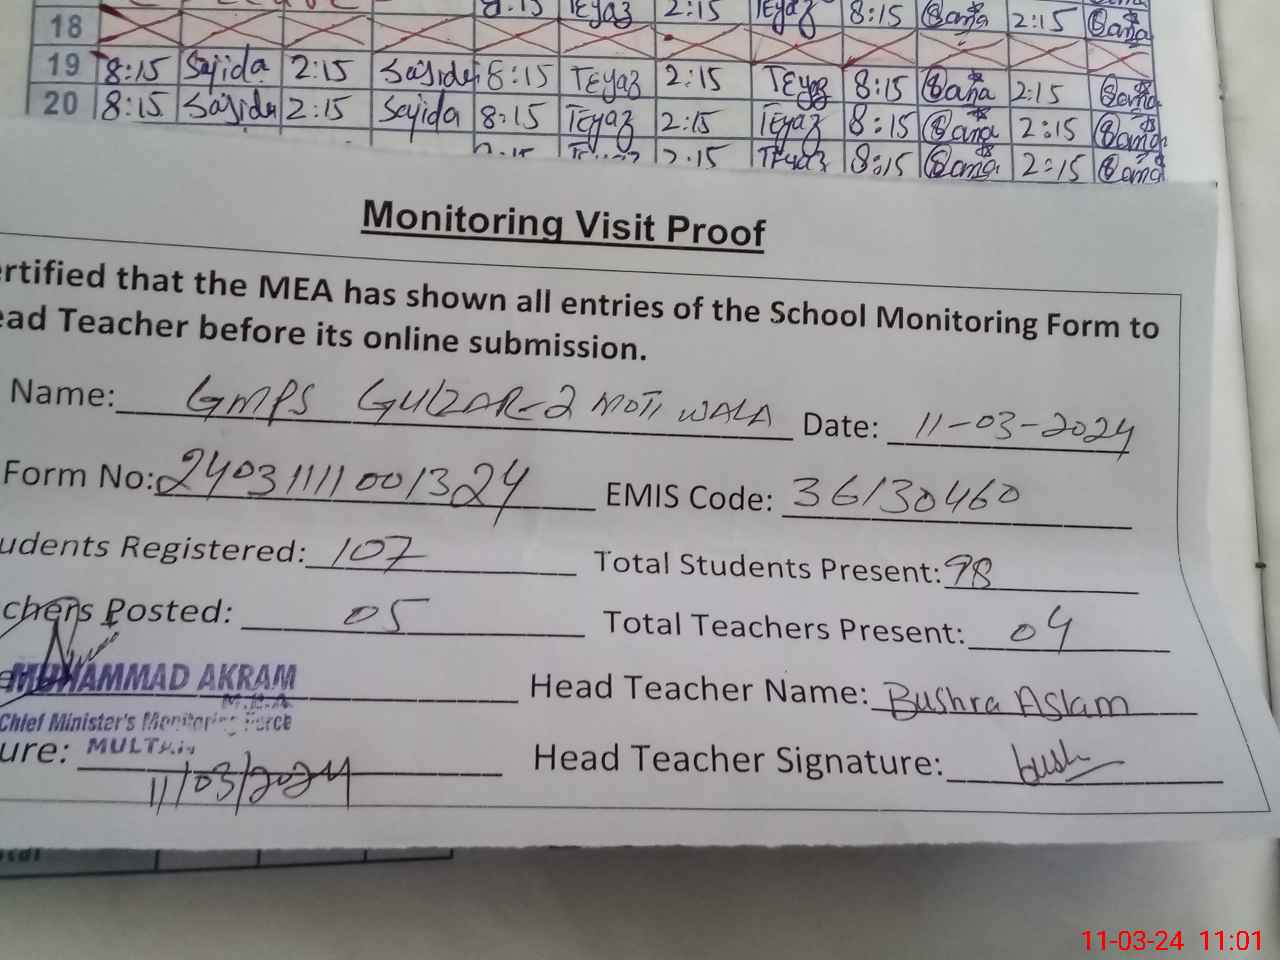 8:15 TEyaz 2:15 TEyaz 8:15 Sana 2:15 Sana
18
19 8:15 Sajida 2:15 Sajida 8:15 TEyaz 2:15 TEyaz 8:15 Sana 2:15 Sana
20 8:15 Sajida 2:15 Sajida 8:15 TEyaz 2:15 TEyaz 8:15 Sana 2:15 Sana
2:15 TEyaz 8:15 Sana 2:15 Sana
Monitoring Visit Proof
ertified that the MEA has shown all entries of the School Monitoring Form to
ead Teacher before its online submission.
Name: GMPS GULZAR-2 MOTI WALA Date: 11-03-2024
Form No: 24031111001324 EMIS Code: 36130460
udents Registered: 107 Total Students Present: 98
chers Posted: 05 Total Teachers Present: 04
MUHAMMAD AKRAM Head Teacher Name: Bushra Aslam
M.E.A
Chief Minister's Monitoring Force
MULTAN
ure: 11/03/2024 Head Teacher Signature: bush
11-03-24 11:01